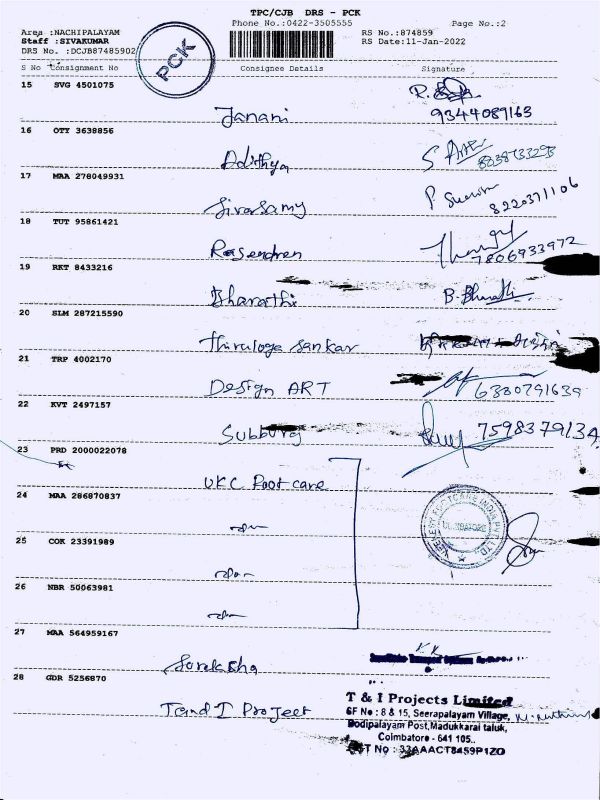 TPC/CJB DRS - PCK
Phone No.:0422-3505555 Page No.:2
Area :NACHIPALAYAM RS No.:874859
Staff :SIVAKUMAR RS Date:11-Jan-2022
DRS No. :DCJB87485902
PCK
S No Consignment No Consignee Details Signature
15 SVG 4501075
Janani 9344089163
16 OTY 3638856
Adithya
17 MAA 278049931
Sivasamy 8220371106
18 TUT 95861421
Rasendren 7806933972
19 RKT 8433216
Bharathi B. Bharathi
20 SLM 287215590
Thiruloga Sankar
21 TRP 4002170
Design ART 6380791639
22 KVT 2497157
Subburaj 7598379134
23 PRD 2000022078
UKC Foot care
24 MAA 286870837
25 COK 23391989
26 NBR 50063981
27 MAA 564959167
Surekha
28 GDR 5256870
T and I Project
T & I Projects Limited
SF No : 8 & 15, Seerapalayam Village,
Bodipalayam Post, Madukkarai taluk,
Coimbatore - 641 105..
GST No : 33AAACT8459P1ZO